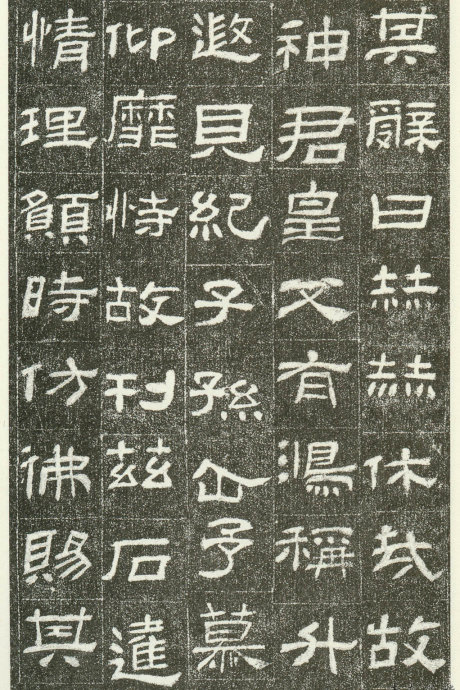 其辭曰赫赫休哉故
神君皇又有鴻稱升
遐見紀子孫企予慕
仰靡恃故刊茲石達
情理願時仿佛賜其